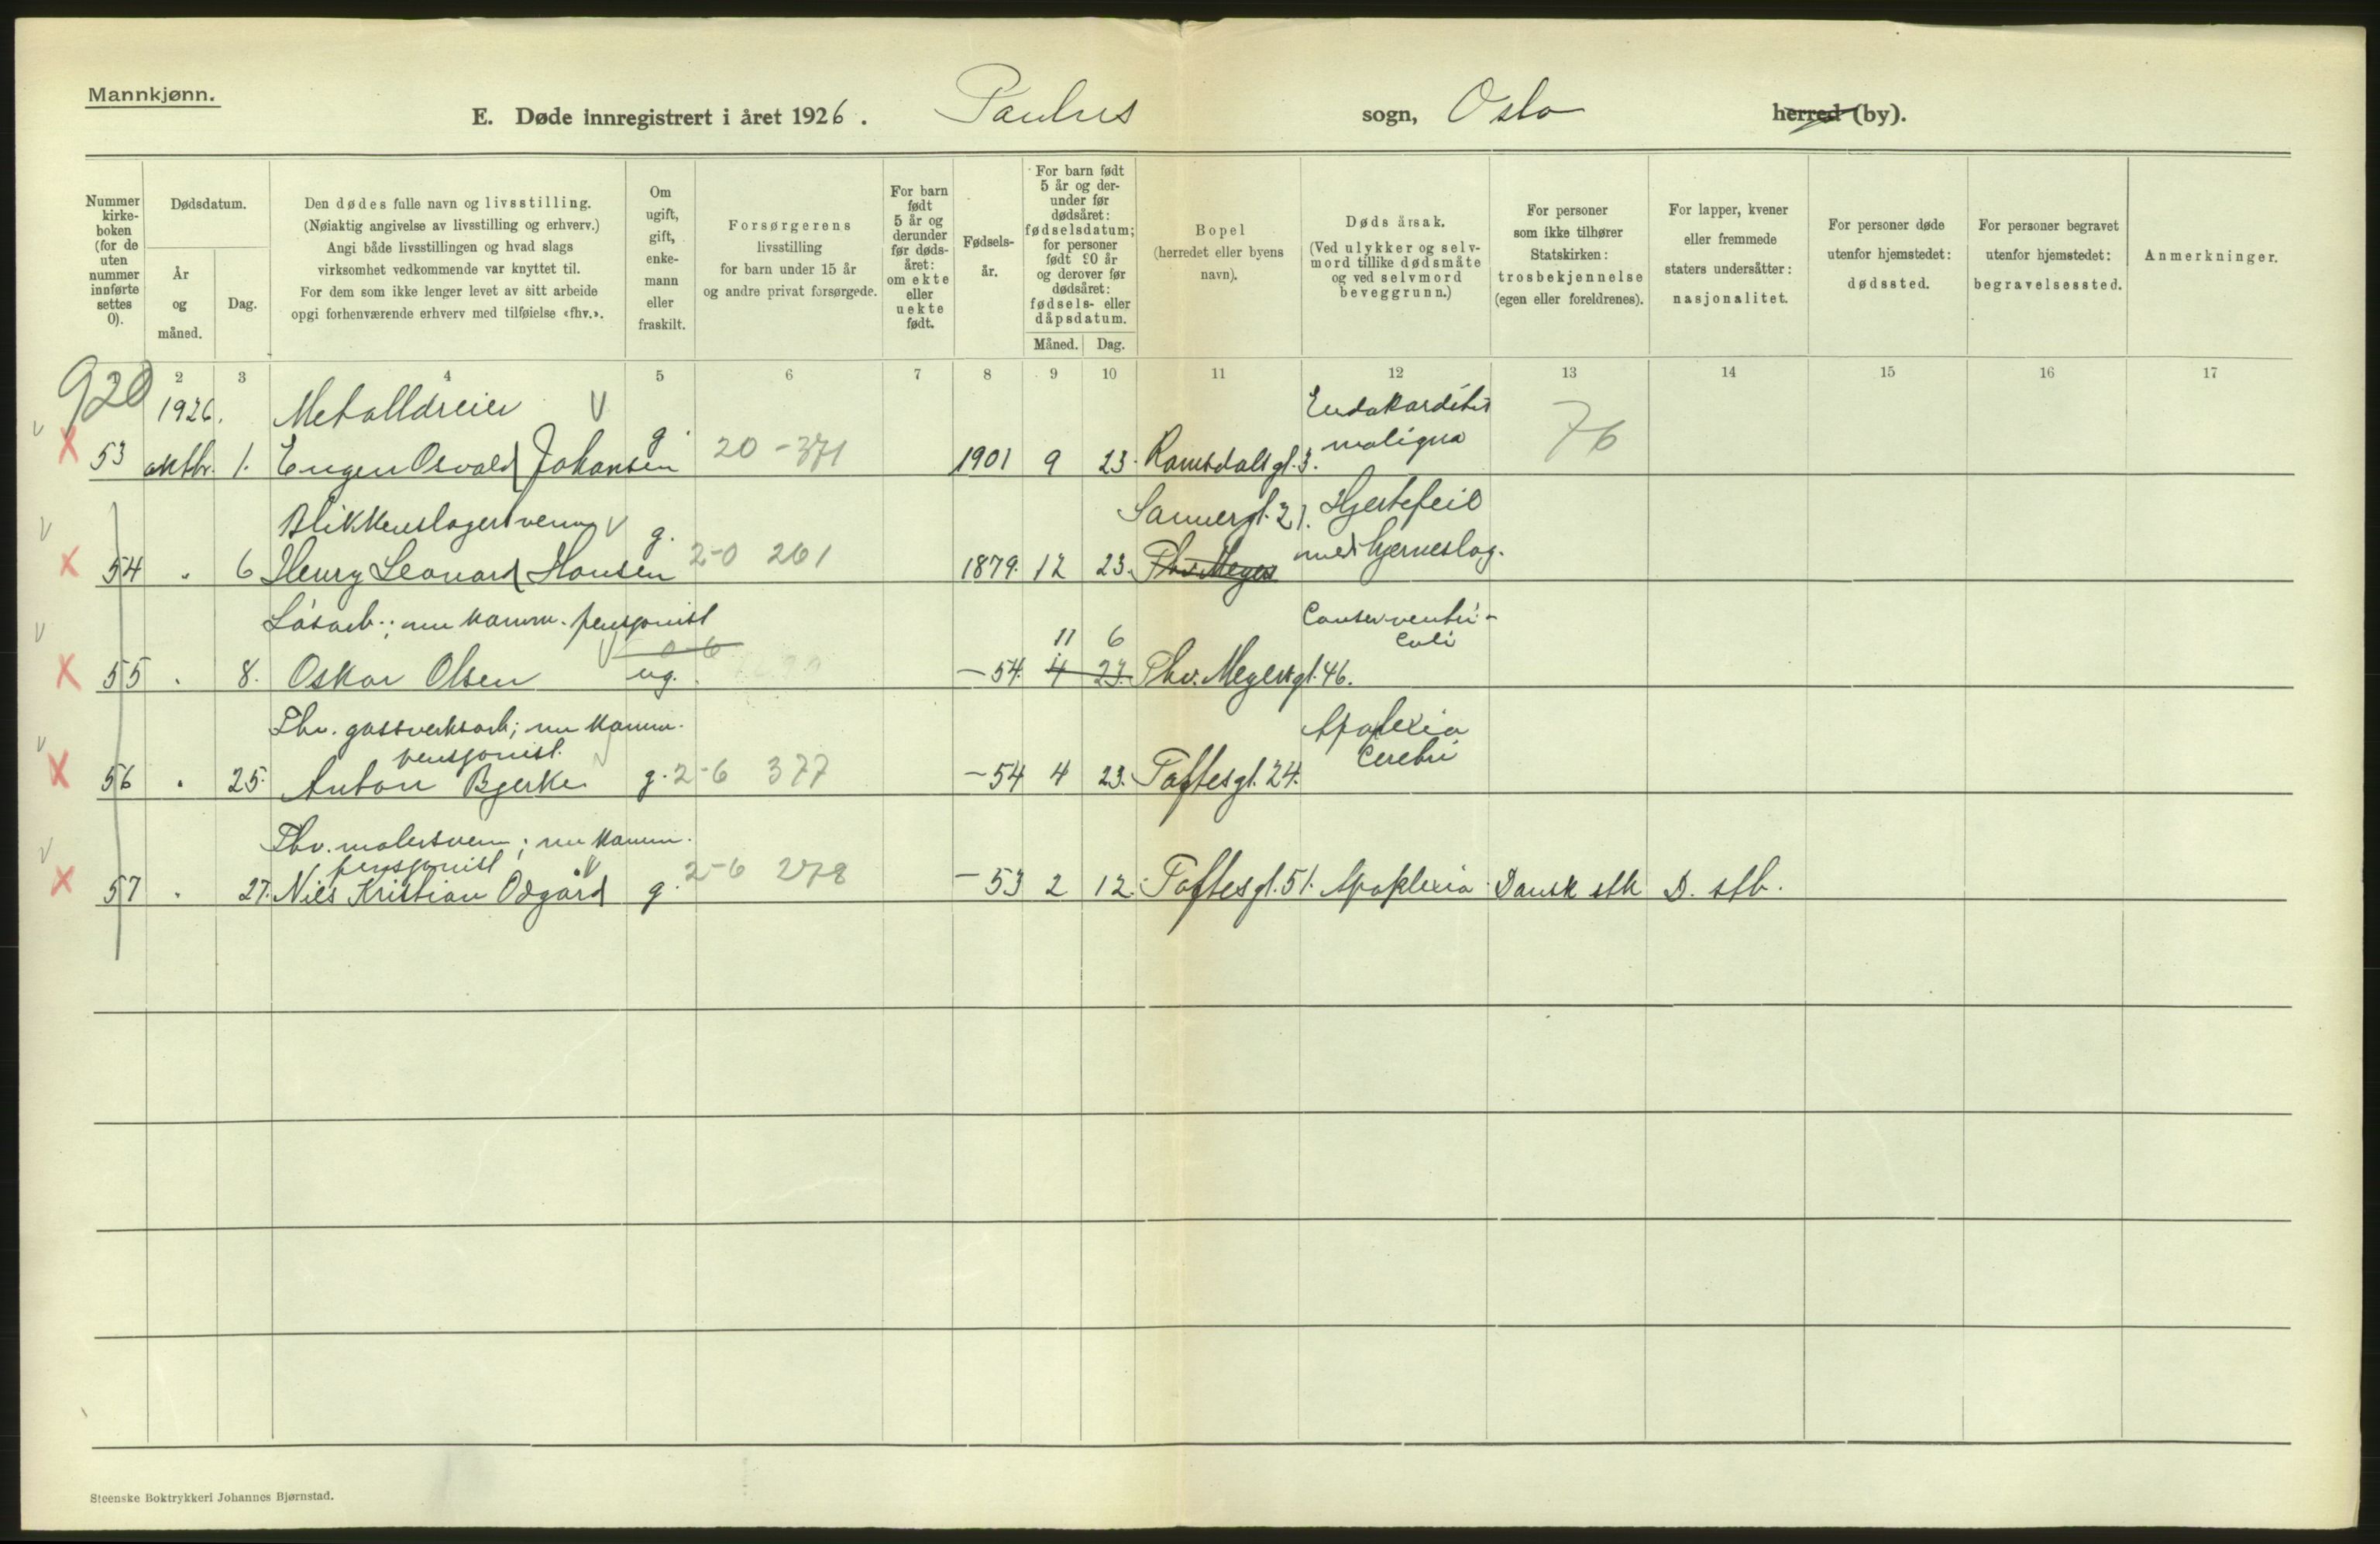 Mannkjønn.
E. Døde innregistrert i året 1926. Paulus sogn, Oslo herred (by).
Nummer kirke- boken (for de uten nummer innførte settes 0).
Dødsdatum.
År og måned.
Dag.
Den dødes fulle navn og livsstilling.
(Nøiaktig angivelse av livsstilling og erhverv.)
Angi både livsstillingen og hvad slags
virksomhet vedkommende var knyttet til.
For dem som ikke lenger levet av sitt arbeide
opgi forhenværende erhverv med tilføielse «fhv.».
Om ugift, gift, enke- mann eller fraskilt.
Forsørgerens
livsstilling
for barn under 15 år
og andre privat forsørgede.
For barn født 5 år og derunder før døds- året: om ekte eller uekte født.
Fødsels- år.
For barn født 5 år og der- under før dødsåret: fødselsdatum; for personer født 90 år og derover før dødsåret: fødsels- eller dåpsdatum.
Måned. Dag.
Bopel
(herredet eller byens navn).
Døds årsak.
(Ved ulykker og selv- mord tillike dødsmåte og ved selvmord beveggrunn.)
For personer som ikke tilhører Statskirken: trosbekjennelse (egen eller foreldrenes).
For lapper, kvener eller fremmede staters undersåtter: nasjonalitet.
For personer døde utenfor hjemstedet: dødssted.
For personer begravet utenfor hjemstedet: begravelsessted.
Anmerkninger.
920 2 3 4 5 6 7 8 9 10 11 12 13 14 15 16 17
1926. Metalldreier Endokarditis
53 oktbr. 1. Eugen Osvald Johansen g. 20-371 1901 9 23. Romsdalsgt. 3. maligna 76
Blikkenslagersvenn Sannergt. 21. Hjertefeil
54 " 6 Henry Leonard Hansen g. 2-0 261 1879. 12 23. Thv. Meyer med hjerneslag.
Løsarb.; nu komm. pensjonist Cancer ventri-
11 6 culi
55 " 8. Oskar Olsen ug. -54. 4 27. Thv. Meyersgt. 46.
Fhv. gassverksarb; nu komm. Apoplexia
pensjonist. Cerebri
56 " 25. Anton Bjerke g. 2-6 377 -54 4 23. Toftesgt. 24.
Fhv. malersvenn; nu komm.
pensjonist
57 " 27. Niels Kristian Odgård g. 2-6 278 -53 2 12. Toftesgt. 51. Apoplexia Dansk stk D. stb.
Steenske Boktrykkeri Johannes Bjørnstad.